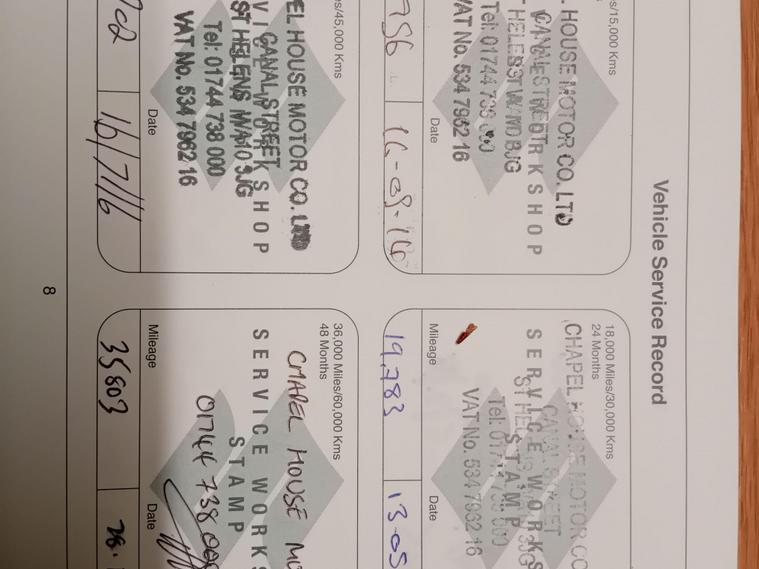 Vehicle Service Record
s/15,000 Kms
. HOUSE MOTOR CO. LTD
CANAL STREET
WORKSHOP
ST HELENS
Tel: 01744 738
VAT No. 534 7962 16
Date
18,000 Miles/30,000 Kms
24 Months
CHAPEL HOUSE MOTOR CO
CANAL STREET
SERVICE WORKS
STAMP
VAT No. 534 7962 16
Mileage
19,783
Date
13-05
s/45,000 Kms
EL HOUSE MOTOR CO. LTD
CANAL STREET
VICE WORKSHOP
ST HELENS WA10 3JG
Tel: 01744 738 000
VAT No. 534 7962 16
Date
16/7/16
36,000 Miles/60,000 Kms
48 Months
CHAPEL HOUSE MO
SERVICE WORKS
STAMP
01744 738 000
Mileage
35803
Date
28.
8